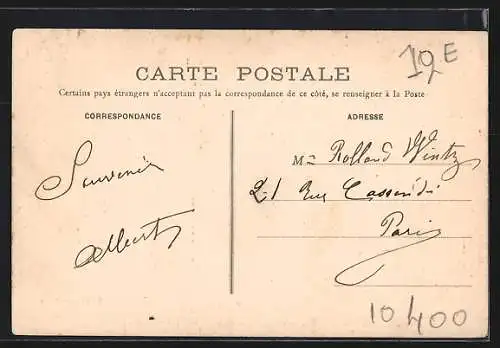 19E
CARTE POSTALE
Certains pays étrangers n'acceptant pas la correspondance de ce côté, se renseigner à la Poste
CORRESPONDANCE
ADRESSE
Souvenir
Albert
M Rolland
21 Rue Cassini
Paris
10 400